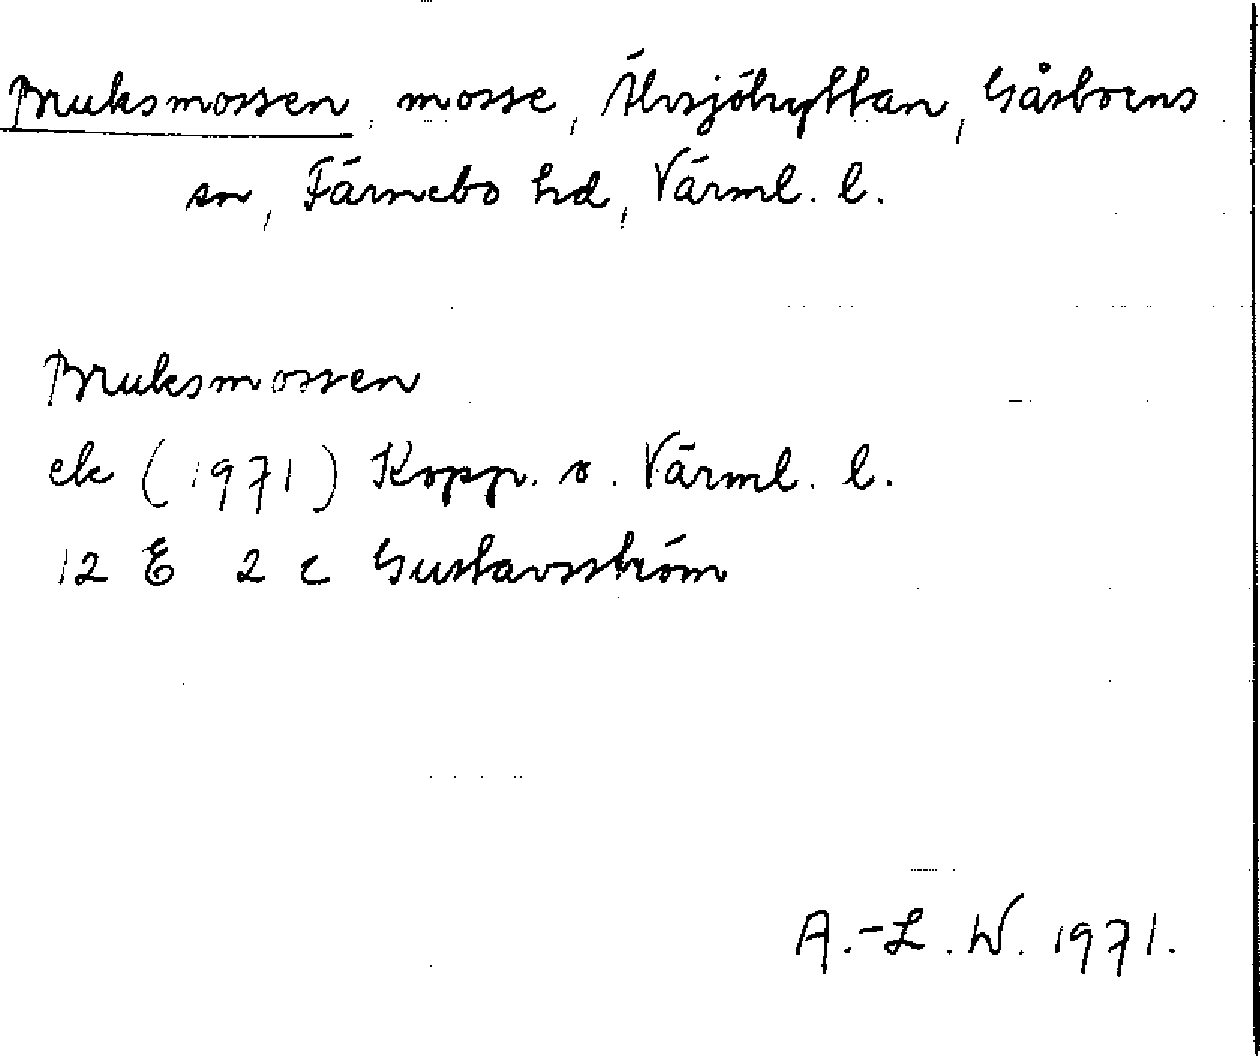 Bruksmossen, mosse, Älvsjöhyttan, Gåsborns
sn, Färnebo hd, Värml. l.
Bruksmossen
ek (1971) Kopp. o. Värml. l.
12 E 2 c Gustavsström
A.-L. W. 1971.